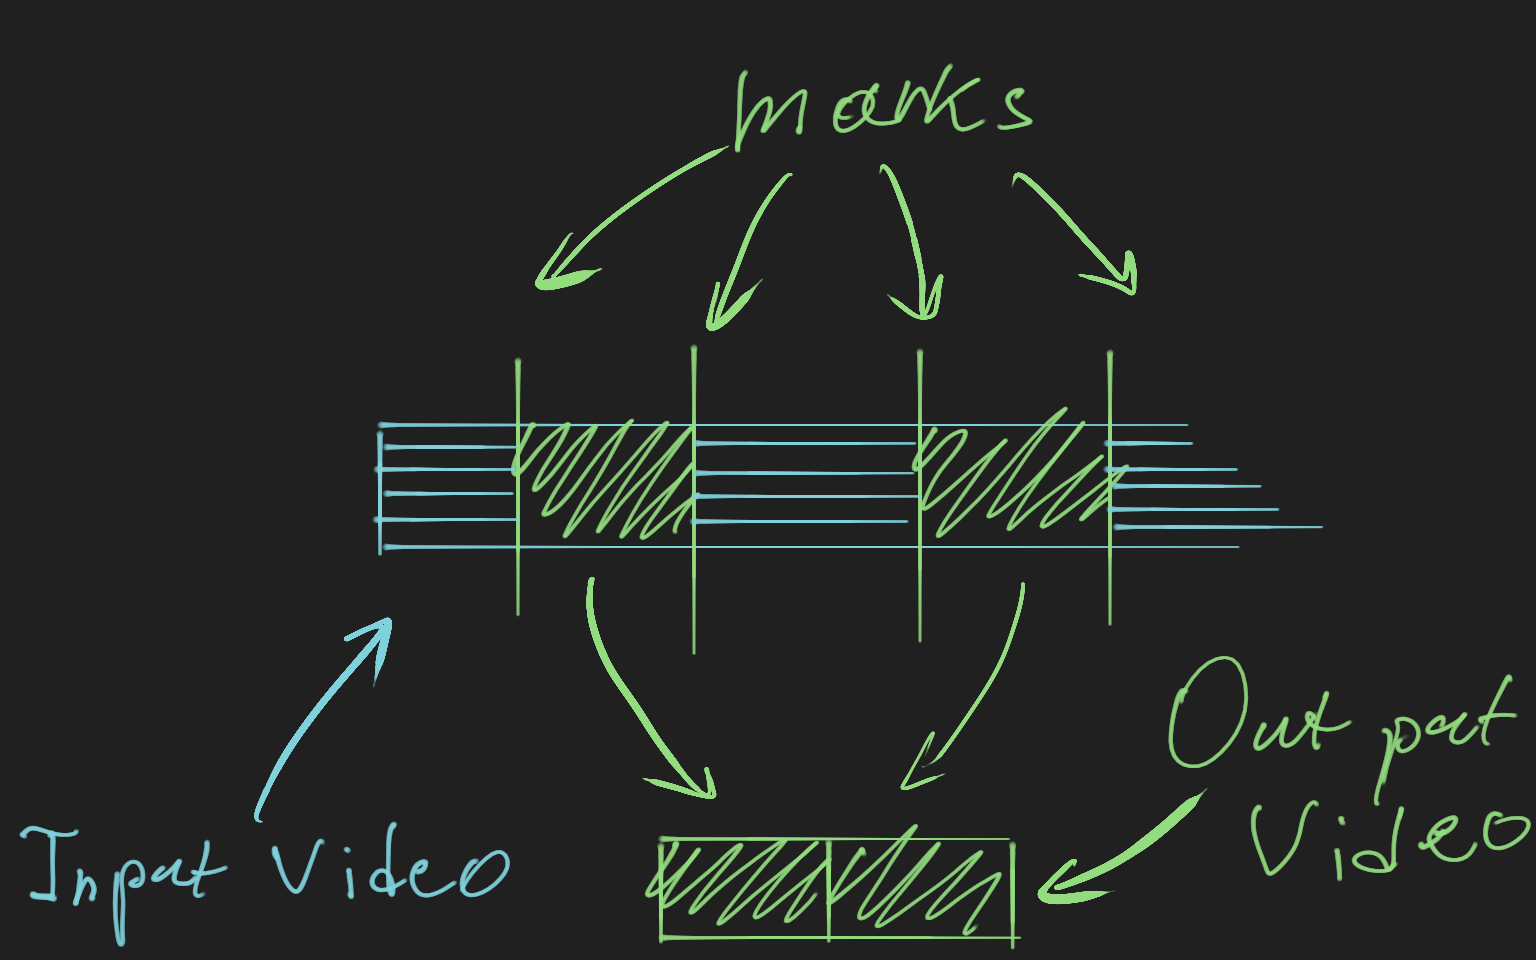 marks
Input Video
Output
Video